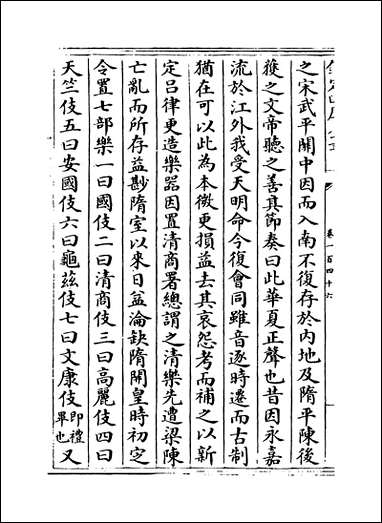 之宋武平關中因而入南不復存於內地及隋平陳後
獲之文帝聽之善其節奏曰此華夏正聲也昔因永嘉
流於江外我受天明命今復會同雖音逐時遷而古制
猶在可以此為本微更損益去其哀怨考而補之以新
定呂律更造樂器因置清商署總謂之清樂先遭梁陳
亡亂而所存益尠隋室以來日益淪缺隋開皇時初定
令置七部樂一曰國伎二曰清商伎三曰高麗伎四曰
天竺伎五曰安國伎六曰龜茲伎七曰文康伎即禮畢也又
卷一百四十六